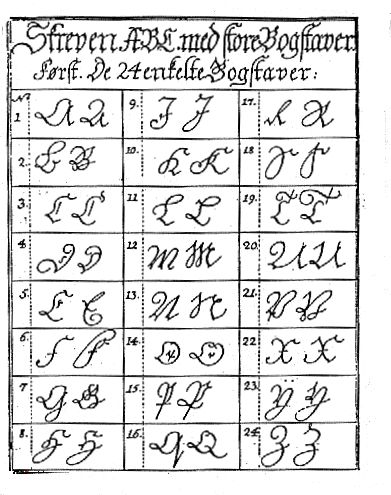 Skreven ABC. med store Bogstaver.
Først. De 24 enkelte Bogstaver:
No 1 A A 9. J J 17. R R
2. B B 10. K K 18 S S
3. C C 11 L L 19. T T
4. D D 12 M M 20. U U
5. E E 13. N N 21. V V
6. F F 14. O O 22 X X
7 G G 15. P P 23. Ÿ Y
8. H H 16. Q Q 24. Z Z